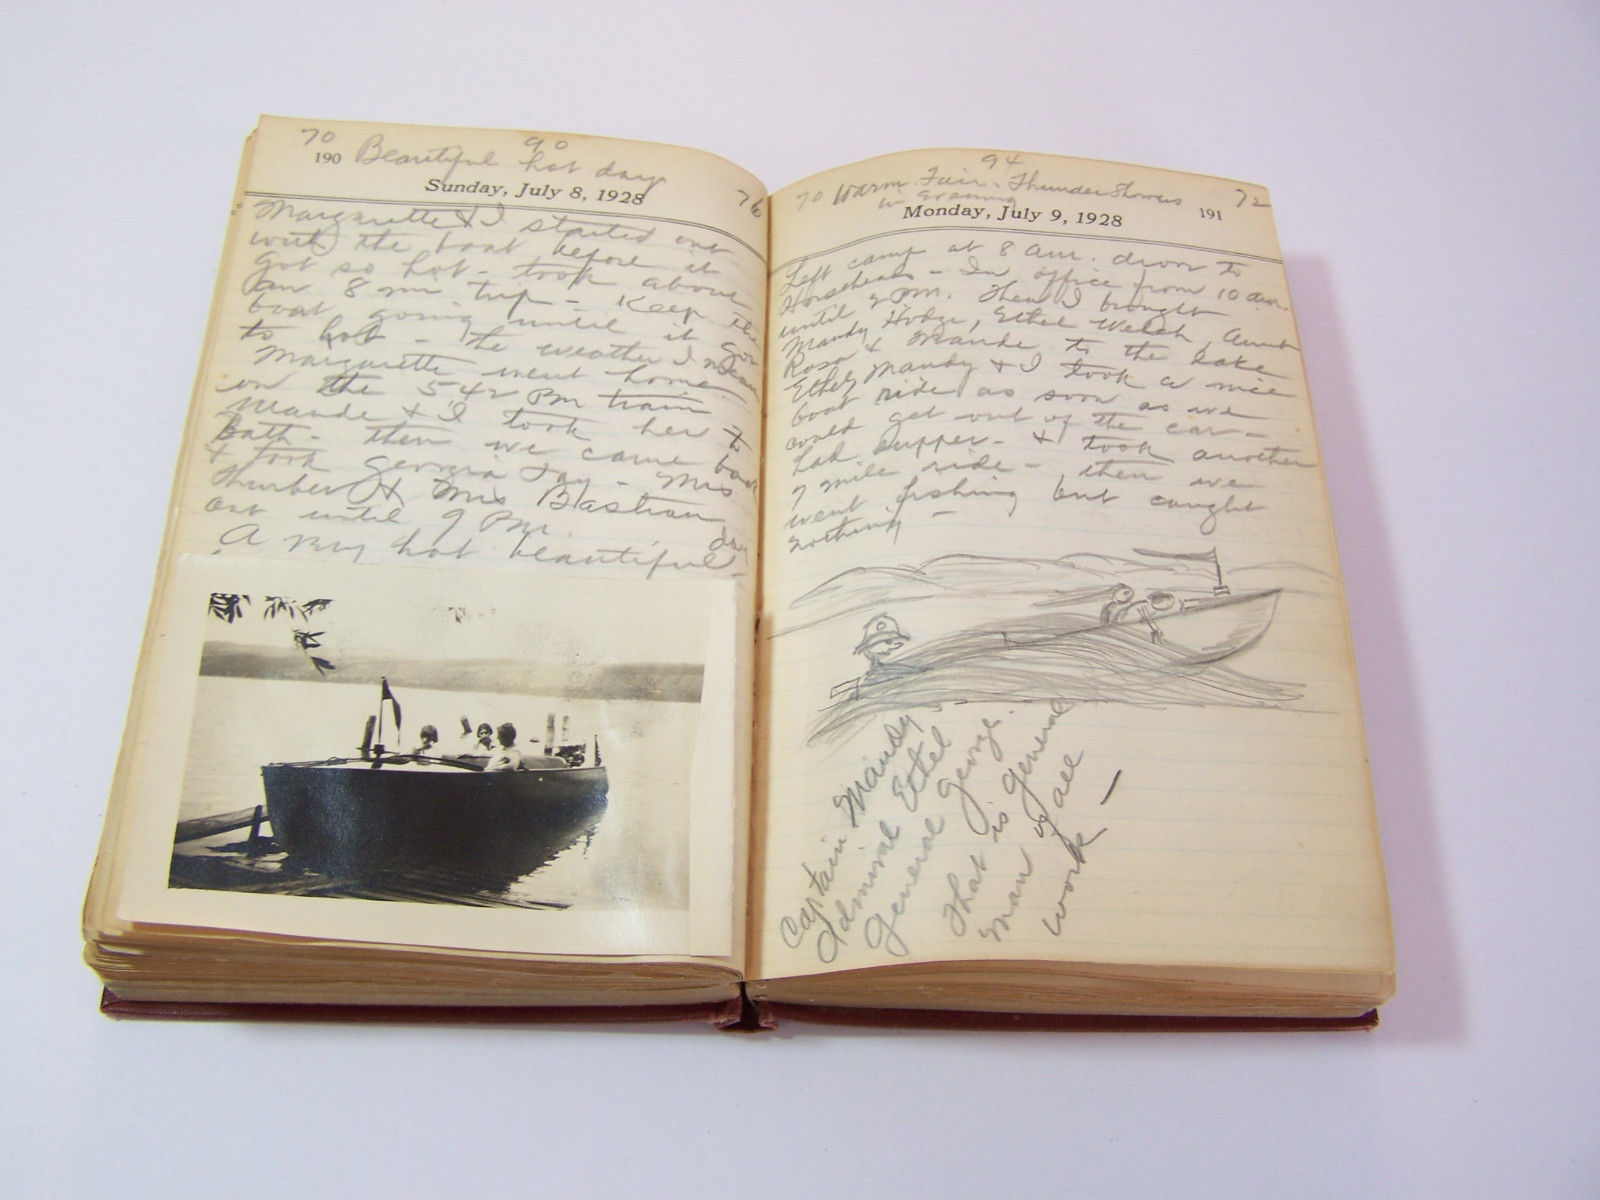 70 90
190 Beautiful hot day
Sunday, July 8, 1928 76
Margarette & I started out
with the boat before it
got so hot - took about
an 8 mi trip - Keep the
boat going until it got
to hot - the weather I mean
Margarette went home
on the 5:42 PM train
Maude & I took her to
Bath - then we came back
& took Georgia Fay - Mrs
Thurber & Mrs Bastian
out until 9 PM.
A very hot beautiful day
94
70 Warm. Fair. Thunder Showers 72
in Evening
Monday, July 9, 1928 191
Left camp at 8 am. drove to
Horseheads - In office from 10 am.
until 2 PM. Then I brought
Mandy Hodge, Ethel Welch, Aunt
Rosa & Maude to the Lake
Ethel, Mandy & I took a nice
boat ride as soon as we
could get out of the car -
had supper - & took another
7 mile ride - then we
went fishing but caught
nothing -
Captain Mandy
Admiral Ethel
General George.
That is General
man of all
work -